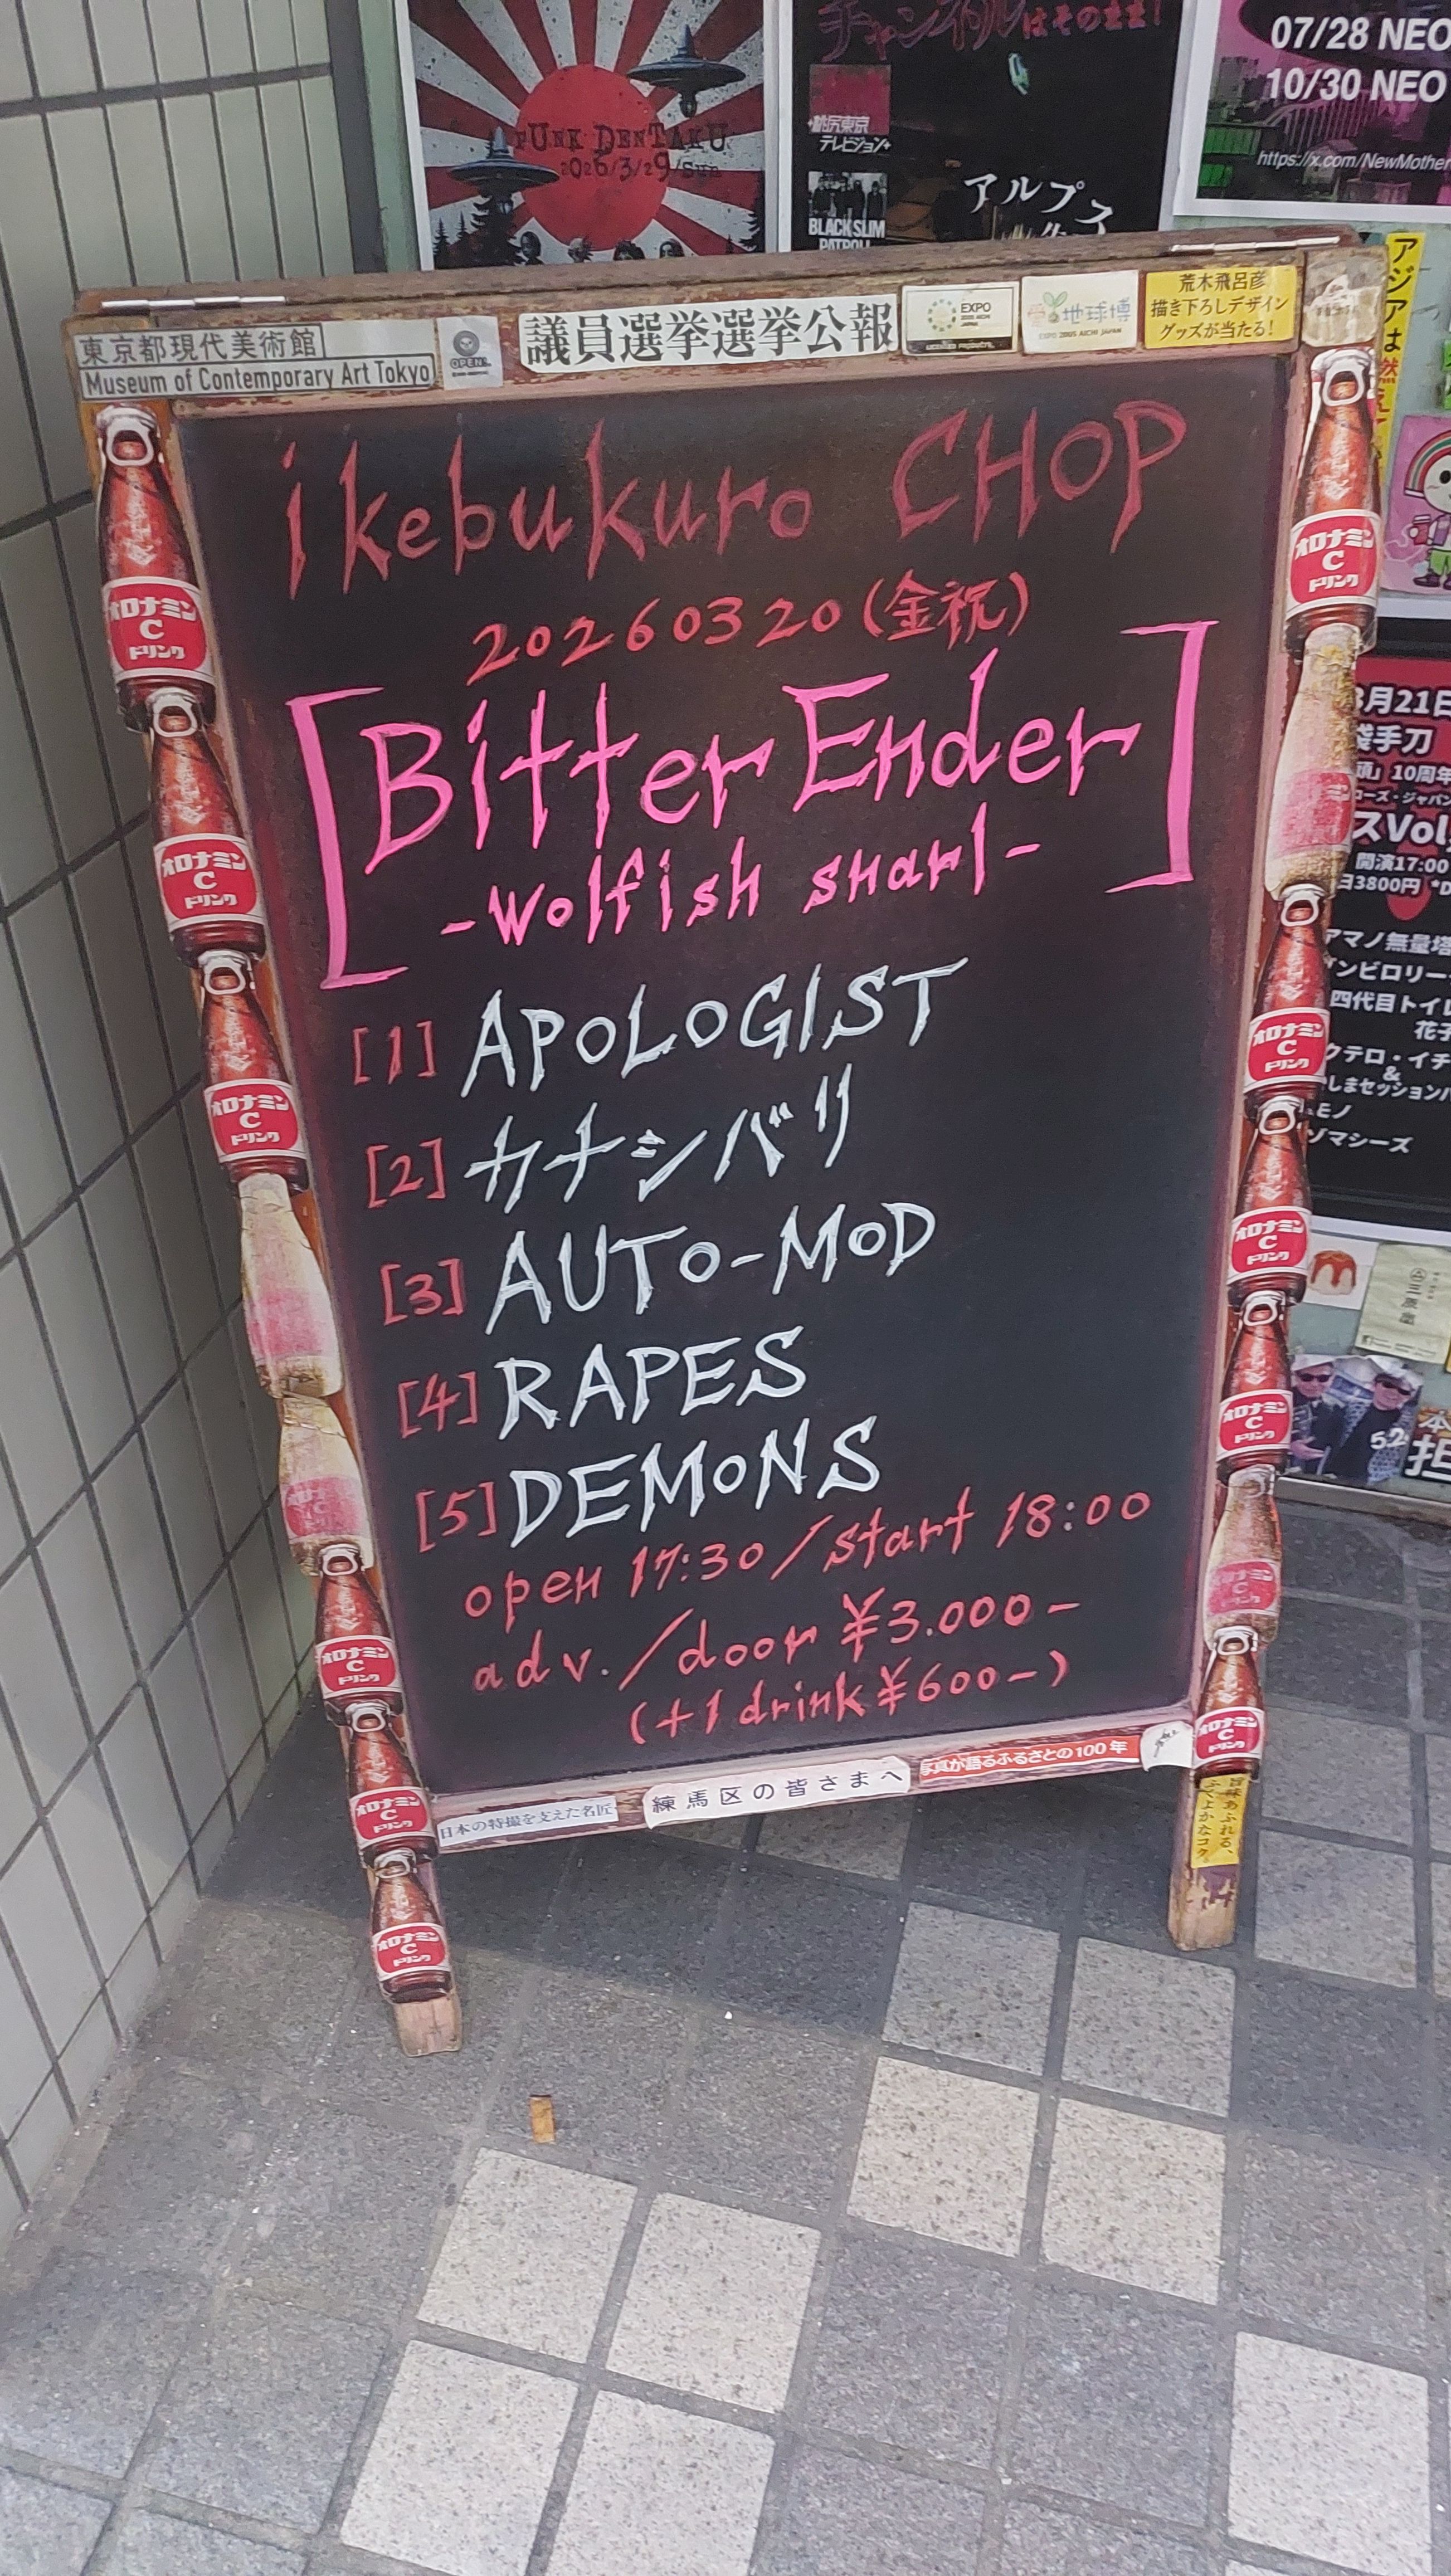 PUNK DENTAKU
2026/3/29/SUN
チャンネルはそのまま!
桃尻東京
テレビジョン
BLACK SLIM
PATROL
アルプス
07/28 NEO
10/30 NEO
https://x.com/NewMother
東京都現代美術館
Museum of Contemporary Art Tokyo
OPEN
議員選挙選挙公報
EXPO
2005 AICHI
JAPAN
地球博
EXPO 2005 AICHI JAPAN
荒木飛呂彦
描き下ろしデザイン
グッズが当たる!
アジアは
ikebukuro CHOP
20260320(金祝)
[Bitter Ender
-Wolfish snarl-]
[1] APOLOGIST
[2] カナシバリ
[3] AUTO-MOD
[4] RAPES
[5] DEMONS
open 17:30/start 18:00
adv./door ¥3.000-
(+1drink¥600-)
日本の特撮を支えた名匠
練馬区の皆さまへ
写真が語るふるさとの100年
旨味あふれる、
ふくよかなコク。
オロナミン
C
ドリンク
オロナミン
C
ドリンク
オロナミン
C
ドリンク
オロナミン
C
ドリンク
オロナミン
C
ドリンク
オロナミン
C
ドリンク
オロナミン
C
ドリンク
オロナミン
C
ドリンク
オロナミン
C
ドリンク
オロナミン
C
ドリンク
オロナミン
C
ドリンク
月21日
袋手刀
10周年
ローズ・ジャパン
スVol
開演17:00
3800円
アマノ無量塔
四代目トイレ
花子
クテロ・イチ
&
しまセッション
モノ
ゾマシーズ
三原堂
5.2